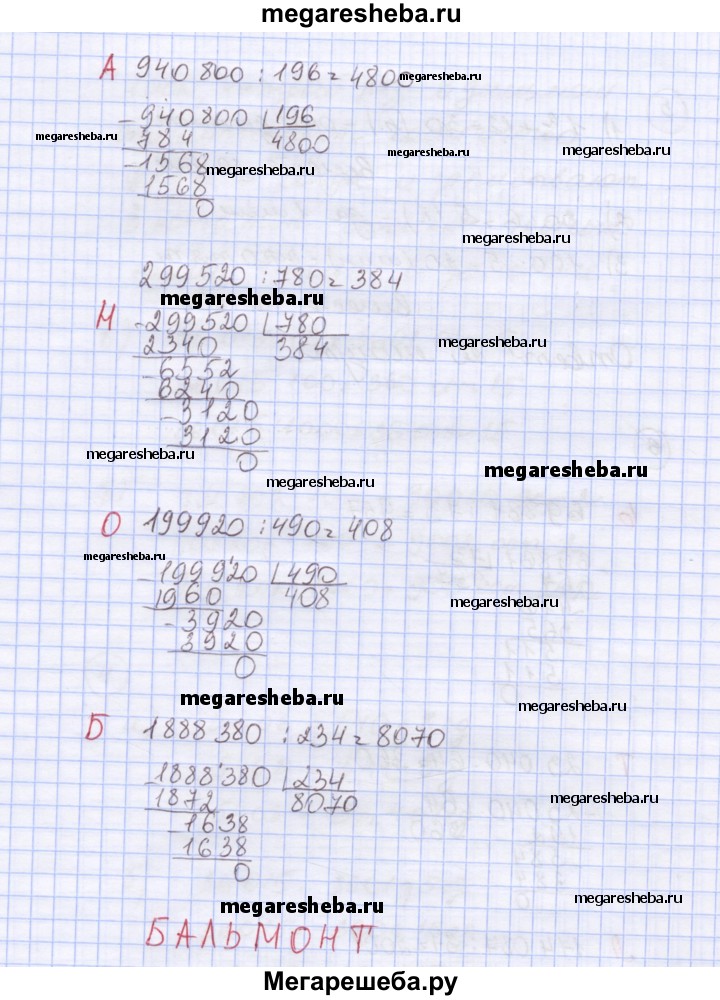 megaresheba.ru
А 940 800 : 196 = 4800
megaresheba.ru
- 940800 | 196
megaresheba.ru
784 4800
megaresheba.ru
- 1568
megaresheba.ru
1568
0
megaresheba.ru
299520 : 780 = 384
megaresheba.ru
Н - 299520 | 780
2340 384
megaresheba.ru
- 6552
6240
- 3120
3120
megaresheba.ru
0
megaresheba.ru
О 199920 : 490 = 408
megaresheba.ru
- 199920 | 490
1960 408
megaresheba.ru
- 3920
3920
0
megaresheba.ru
megaresheba.ru
Б 1888 380 : 234 = 8070
- 1888 380 | 234
1872 8070
megaresheba.ru
- 1638
1638
0
megaresheba.ru
megaresheba.ru
БАЛЬМОНТ
Мегарешеба.ру